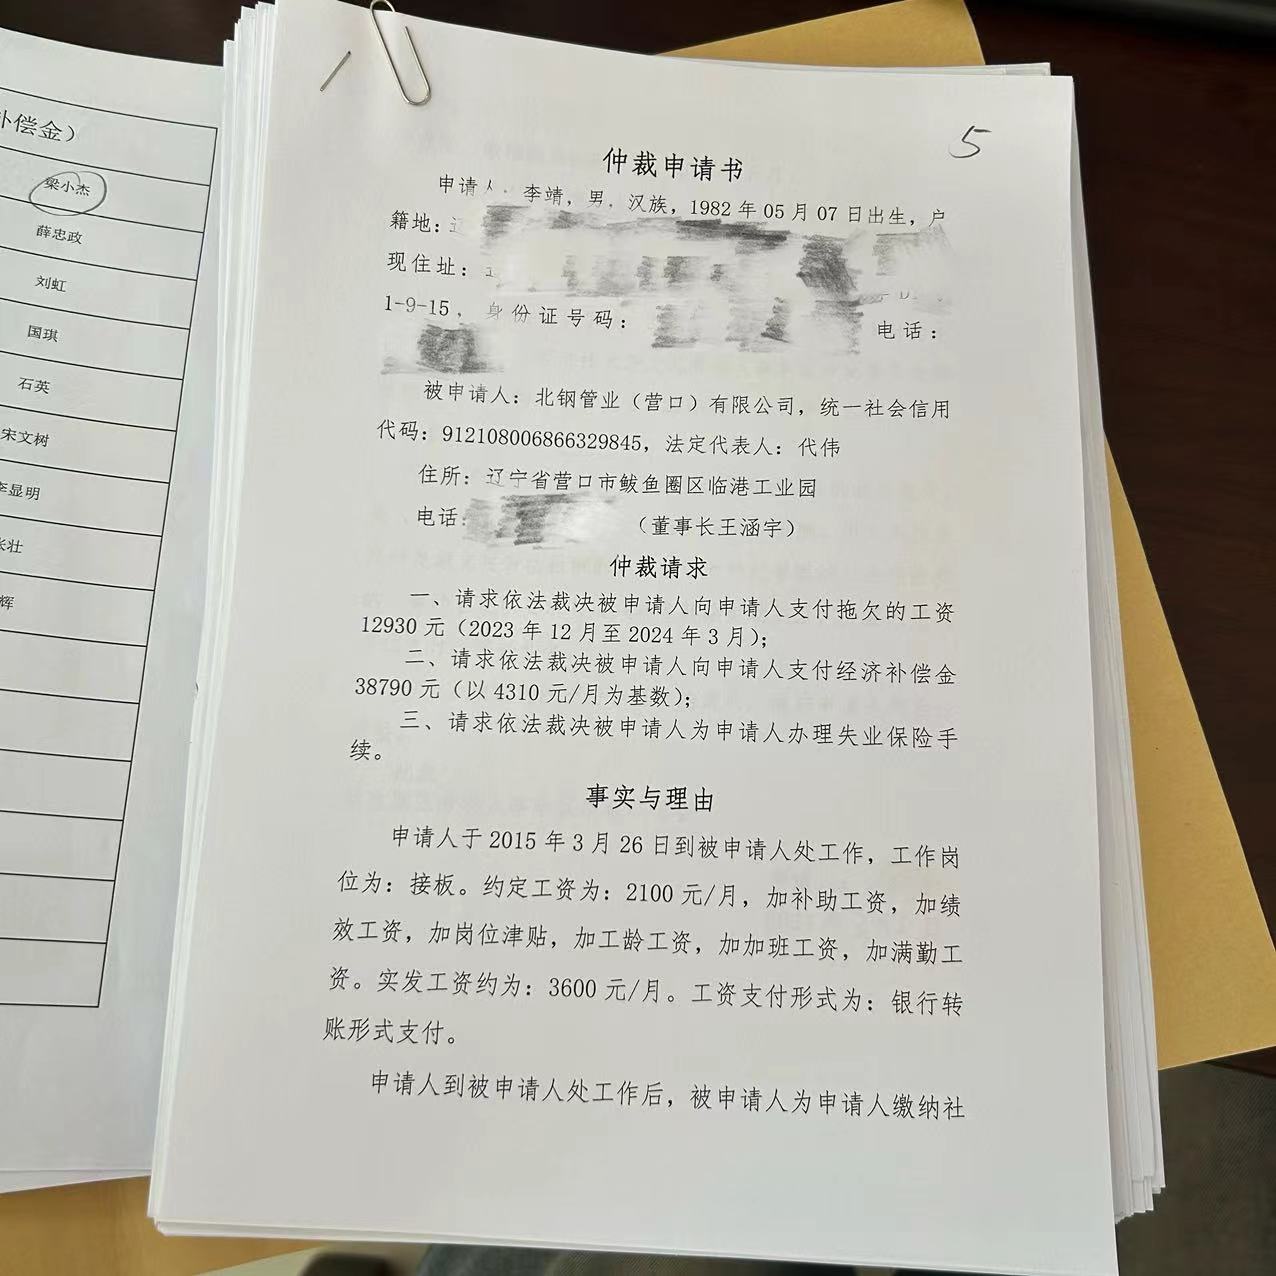 补偿金）
梁小杰
薛忠政
刘虹
国琪
石英
宋文树
李显明
张壮
辉
5
仲裁申请书
申请人：李靖，男，汉族，1982年05月07日出生，户
籍地：
现住址：
1-9-15，身份证号码：电话：
被申请人：北钢管业（营口）有限公司，统一社会信用
代码：912108006866329845，法定代表人：代伟
住所：辽宁省营口市鲅鱼圈区临港工业园
电话：（董事长王涵宇）
仲裁请求
一、请求依法裁决被申请人向申请人支付拖欠的工资
12930元（2023年12月至2024年3月）；
二、请求依法裁决被申请人向申请人支付经济补偿金
38790元（以4310元/月为基数）；
三、请求依法裁决被申请人为申请人办理失业保险手
续。
事实与理由
申请人于2015年3月26日到被申请人处工作，工作岗
位为：接板。约定工资为：2100元/月，加补助工资，加绩
效工资，加岗位津贴，加工龄工资，加加班工资，加满勤工
资。实发工资约为：3600元/月。工资支付形式为：银行转
账形式支付。
申请人到被申请人处工作后，被申请人为申请人缴纳社